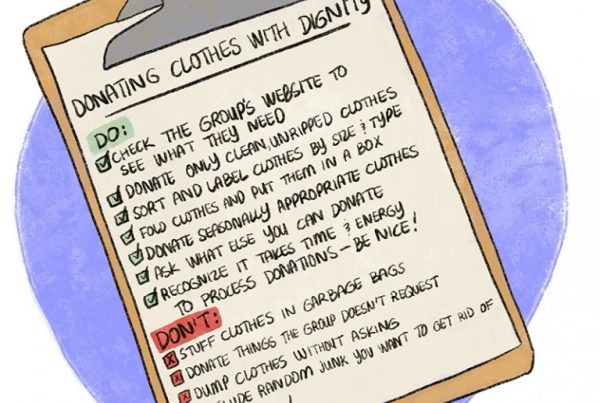 DONATING CLOTHES WITH DIGNITY
DO:
CHECK THE GROUP'S WEBSITE TO
SEE WHAT THEY NEED
DONATE ONLY CLEAN, UNRIPPED CLOTHES
SORT AND LABEL CLOTHES BY SIZE & TYPE
FOLD CLOTHES AND PUT THEM IN A BOX
DONATE SEASONALLY APPROPRIATE CLOTHES
ASK WHAT ELSE YOU CAN DONATE
RECOGNIZE IT TAKES TIME & ENERGY
TO PROCESS DONATIONS — BE NICE!
DON'T:
STUFF CLOTHES IN GARBAGE BAGS
DONATE THINGS THE GROUP DOESN'T REQUEST
DUMP CLOTHES WITHOUT ASKING
RANDOM JUNK YOU WANT TO GET RID OF